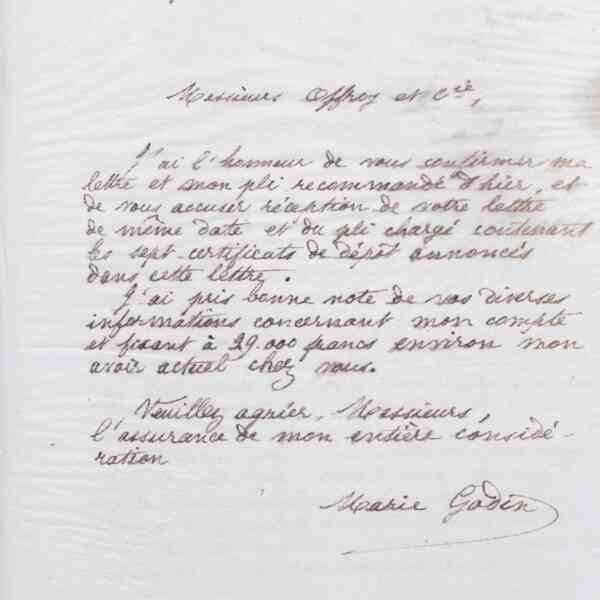 Messieurs Offroy et Cie,
J'ai l'honneur de vous confirmer ma
lettre et mon pli recommandé d'hier, et
de vous accuser réception de votre lettre
de même date et du pli chargé contenant
les sept certificats de dépôt annoncés
dans cette lettre.
J'ai pris bonne note de vos diverses
informations concernant mon compte
et fixant à 29.000 francs environ mon
avoir actuel chez vous.
Veuillez agréer, Messieurs,
l'assurance de mon entière considé-
ration
Marie Godin